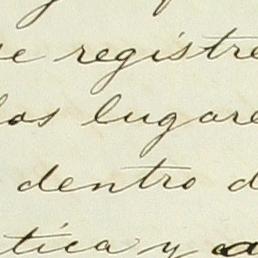 se registre
los lugare
dentro d
tica y a